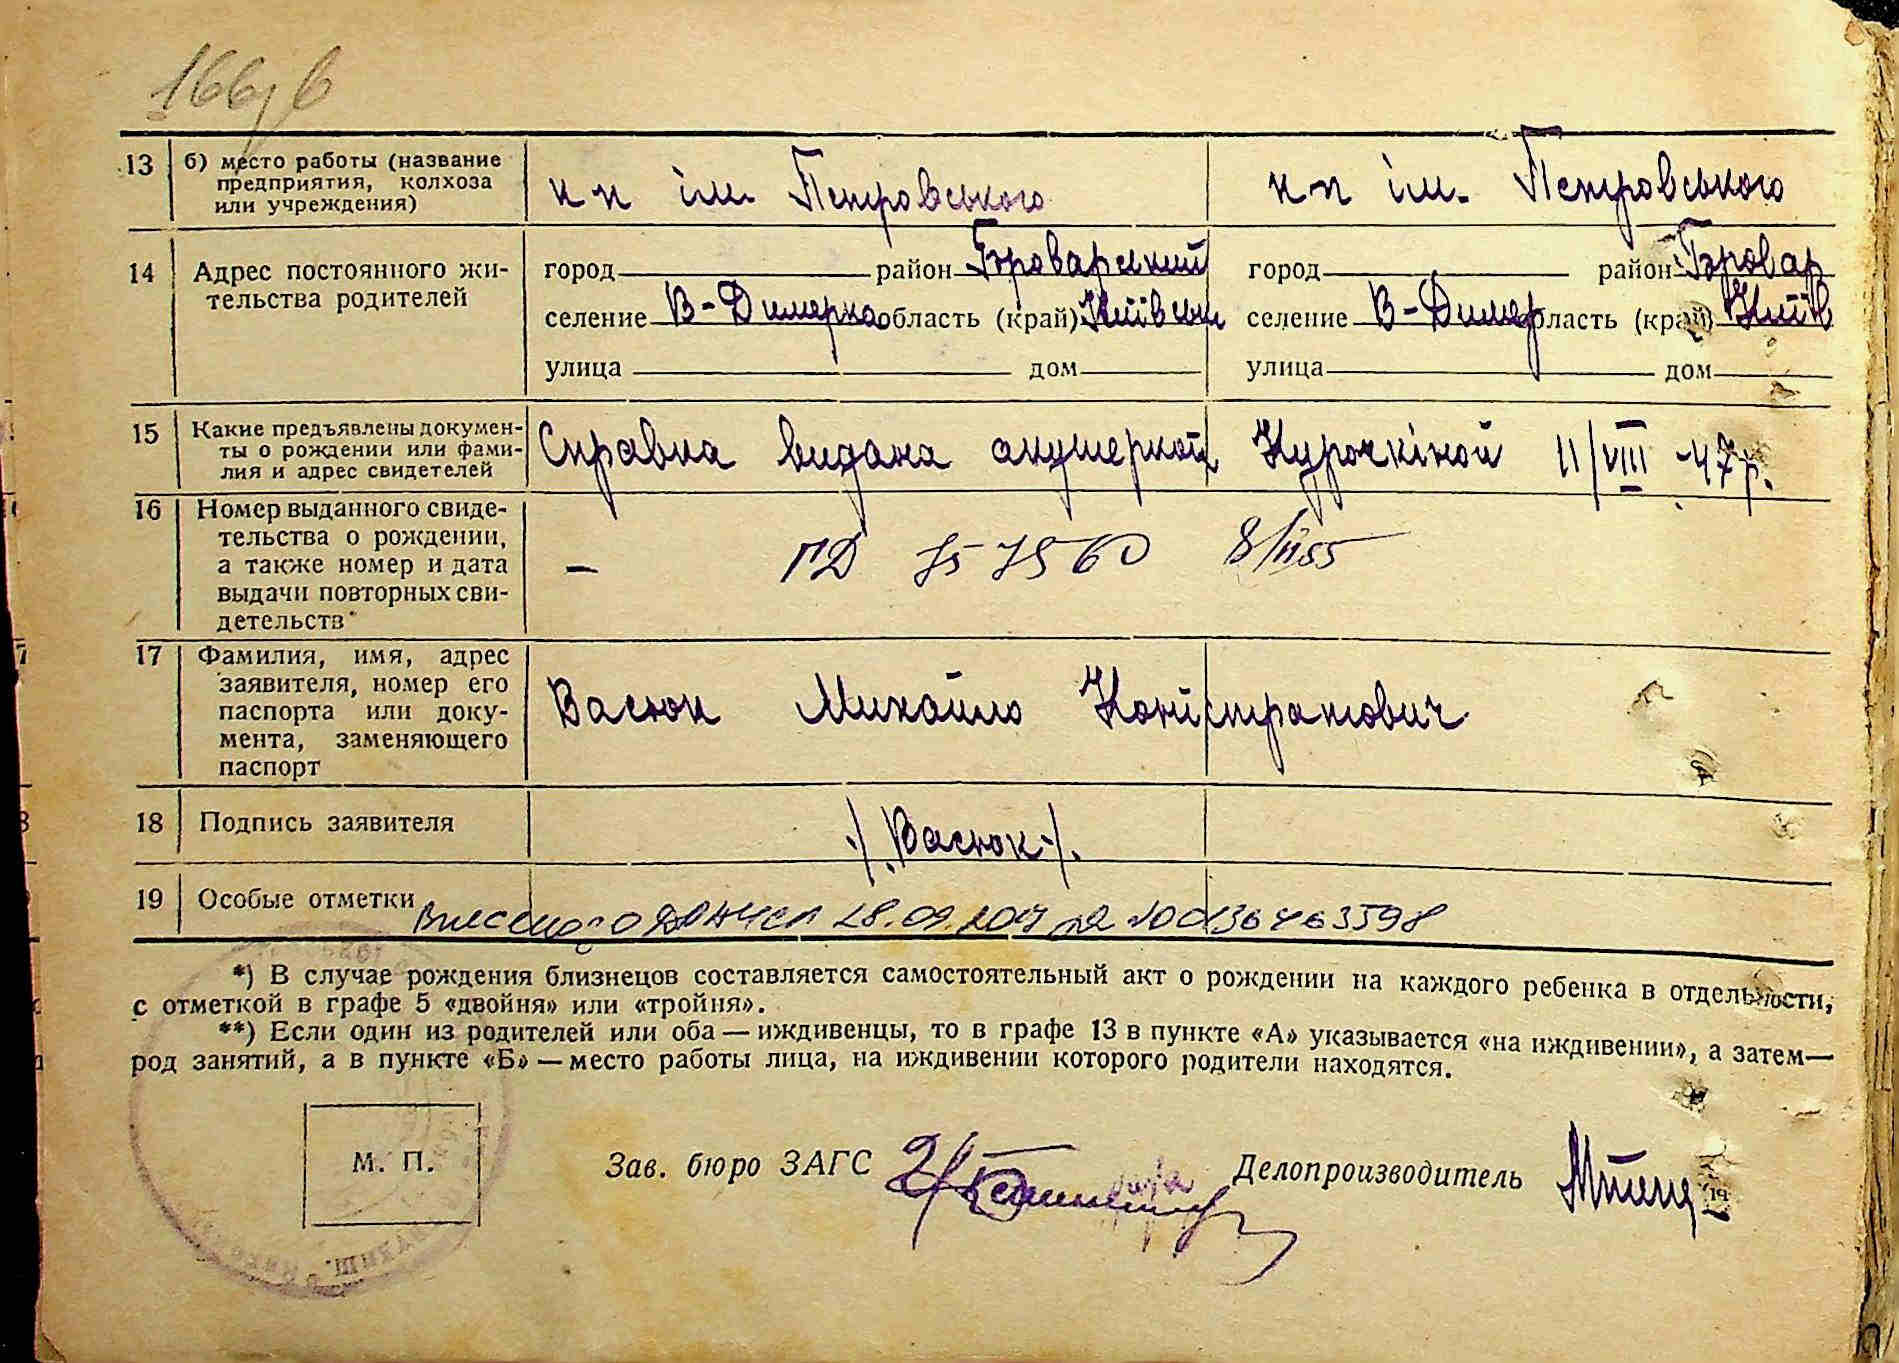 166
13 б) место работы (название предприятия, колхоза или учреждения) к-п ім. Петровського к-п ім. Петровського
14 Адрес постоянного жи-
тельства родителей
город район Броварський город район Бровар
селение В-Димерка область (край) Київськ селение В-Димер область (край) Київ
улица дом улица дом
15 Какие предъявлены докумен-
ты о рождении или фами-
лия и адрес свидетелей
Справка видана акушеркой Курочкіной 11/VIII -47р.
16 Номер выданного свиде-
тельства о рождении,
а также номер и дата
выдачи повторных сви-
детельств*
–
17 Фамилия, имя, адрес
заявителя, номер его
паспорта или доку-
мента, заменяющего
паспорт
Васюк Михайло
18 Подпись заявителя ./.Васюк./.
19 Особые отметки
28.09.2017
*) В случае рождения близнецов составляется самостоятельный акт о рождении на каждого ребенка в отдельности,
с отметкой в графе 5 «двойня» или «тройня».
**) Если один из родителей или оба — иждивенцы, то в графе 13 в пункте «А» указывается «на иждивении», а затем—
род занятий, а в пункте «Б» — место работы лица, на иждивении которого родители находятся.
М. П. Зав. бюро ЗАГС Делопроизводитель